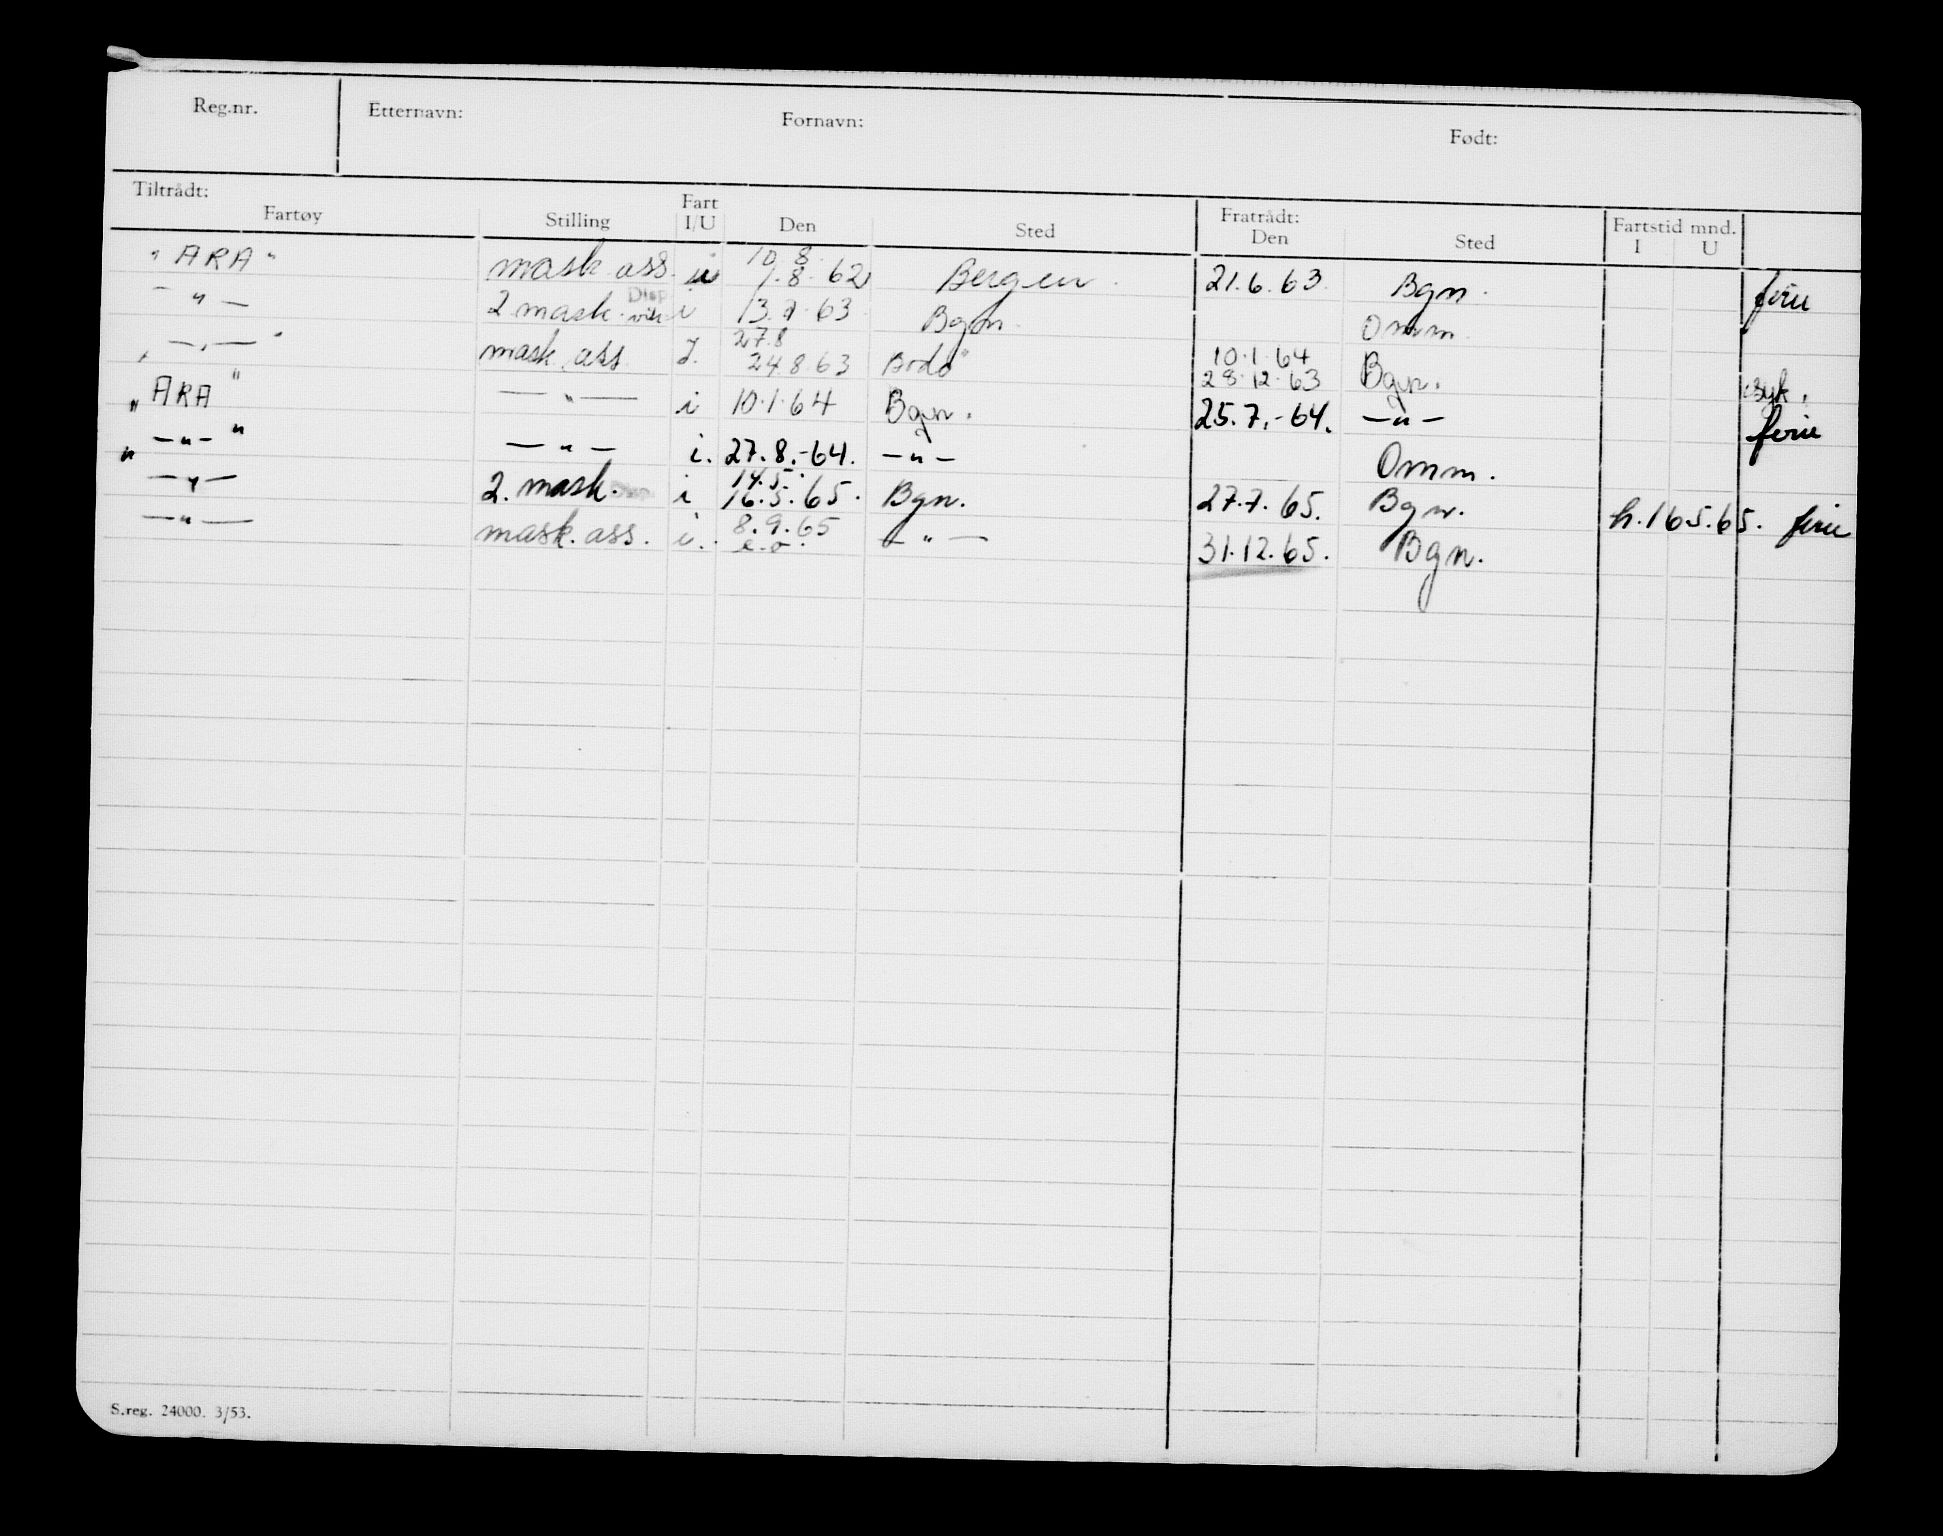 Reg.nr. Etternavn: Fornavn: Født:
Tiltrådt: Fratrådt: Fartstid mnd.
Fartøy Stilling Fart I/U Den Sted Den Sted I U
10.8.
"ARA" mask. ass. 1.8.62 Bergen 21.6.63. Bgn. ferie
— " — 2 mask. Disp i 13.7.63 Bgn. Omm.
27.8 10.1.64
" — " — " mask. ass. I. 24.8.63 Bodø 28.12.63 Bgn. syk.
"ARA" — " — i 10.1.64 Bgn. 25.7.-64. — " — ferie
" — " — " — " — i. 27.8.-64. — " — Omm.
14.5.
— " — 2. mask. i 16.5.65. Bgn. 27.7.65. Bgn. h.16.5.65. ferie
— " — mask. ass. i. 8.9.65 — " — 31.12.65. Bgn.
e.o.
S.reg. 24000. 3/53.